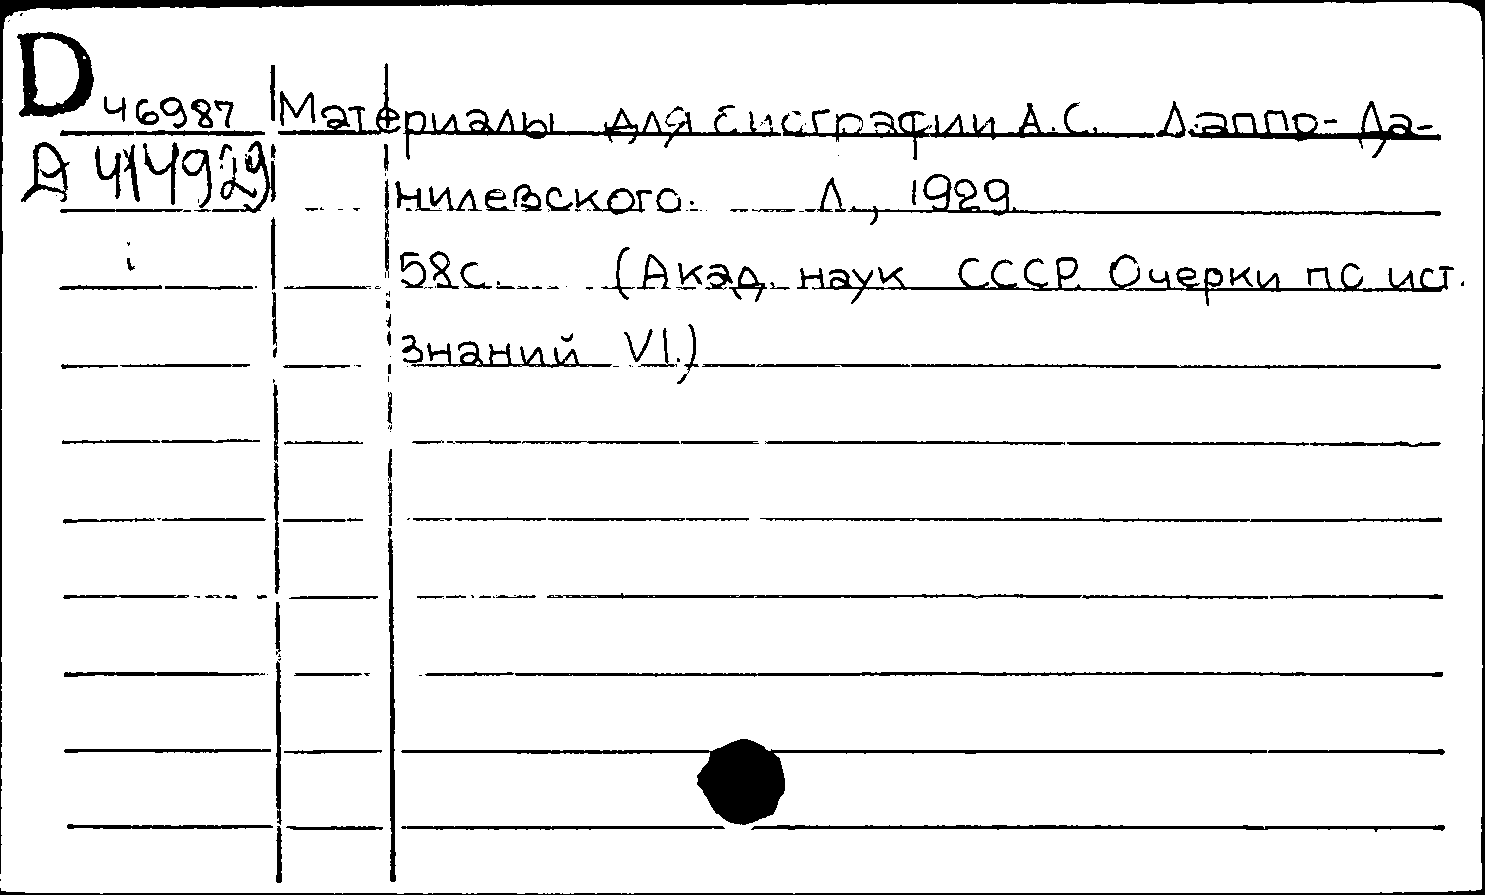 D 46987 Материалы для биографии А.С. Лаппо-Да-
А 414929 нилевского. Л., 1929.
58с. (Акад. наук СССР. Очерки по ист.
знаний VI.)